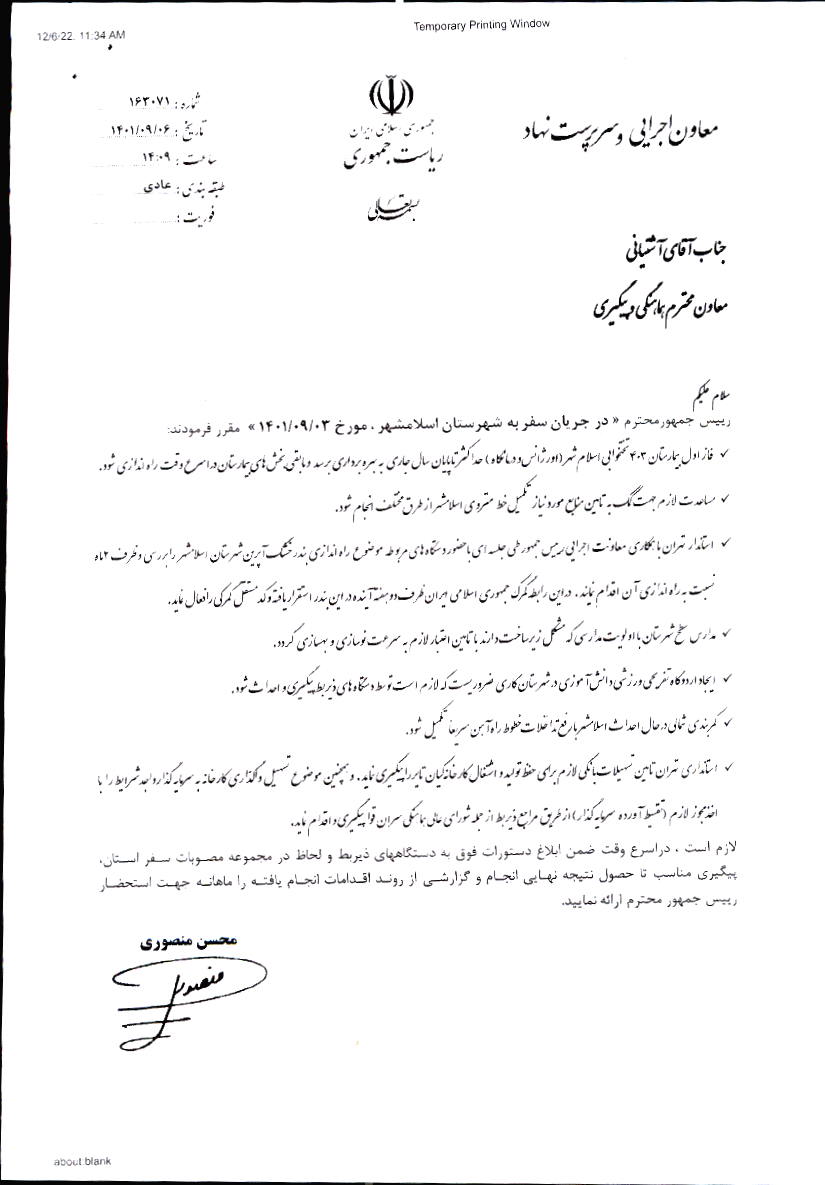 12/6/22, 11:34 AM
Temporary Printing Window
جمهوری اسلامی ایران
ریاست جمهوری
بسمه تعالی
معاون اجرایی و سرپرست نهاد
شماره : ۱۶۳۰۷۱
تاریخ : ۱۴۰۱/۰۹/۰۶
ساعت : ۱۴:۰۹
طبقه بندی : عادی
فوریت :
جناب آقای آشتیانی
معاون محترم هماهنگی و پیگیری
سلام علیکم
رییس جمهور محترم « در جریان سفر به شهرستان اسلامشهر ، مورخ ۱۴۰۱/۰۹/۰۳ » مقرر فرمودند:
✓ فاز اول بیمارستان ۴۰۳ تختخوابی اسلام شهر (اورژانس و درمانگاه) حداکثر تا پایان سال جاری به بهره برداری برسد و مابقی بخش های بیمارستان در اسرع وقت راه اندازی شود.
✓ مساعدت لازم جهت کمک به تامین منابع مورد نیاز تکمیل خط متروی اسلامشهر از طرق مختلف انجام شود.
✓ استاندار تهران با همکاری معاونت اجرایی رییس جمهور طی جلسه ای با حضور دستگاه های مربوطه موضوع راه اندازی بندر خشک آپرین شهرستان اسلامشهر را بررسی و ظرف ۲ ماه
نسبت به راه اندازی آن اقدام نمایند . در این رابطه گمرک جمهوری اسلامی ایران ظرف دو هفته آینده در این بندر استقرار یافته و کد مستقل گمرکی را فعال نماید.
✓ مدارس سطح شهرستان با اولویت مدارسی که مشکل زیرساخت دارند با تامین اعتبار لازم به سرعت نوسازی و بهسازی گردد.
✓ ایجاد اردوگاه تفریحی ورزشی دانش آموزی در شهرستان کاری ضروریست که لازم است توسط دستگاه های ذیربط پیگیری و احداث شود.
✓ کمربندی شمالی در حال احداث اسلامشهر با رفع تداخلات خطوط راه آهن سریعاً تکمیل شود.
✓ استانداری تهران تامین تسهیلات بانکی لازم برای حفظ تولید و اشتغال کارخانه کیان تایر را پیگیری نماید . و همچنین موضوع تسهیل واگذاری کارخانه به سرمایه گذار واجد شرایط را با
اخذ مجوز لازم (تقسیط آورده سرمایه گذار) از طریق مراجع ذیربط از جمله شورای عالی هماهنگی سران قوا پیگیری و اقدام نماید.
لازم است ، دراسرع وقت ضمن ابلاغ دستورات فوق به دستگاههای ذیربط و لحاظ در مجموعه مصوبات سفر استان،
پیگیری مناسب تا حصول نتیجه نهایی انجام و گزارشی از روند اقدامات انجام یافته را ماهانه جهت استحضار
رییس جمهور محترم ارائه نمایید.
محسن منصوری
about:blank